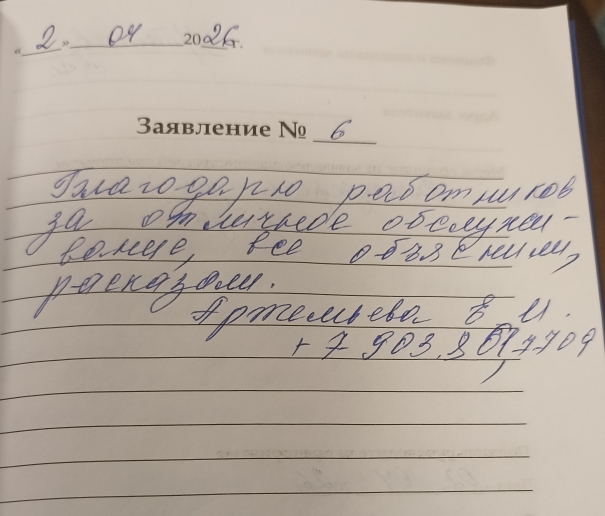 «2» 04 2026г.
Заявление № 6
Благодарю работников
за отличное обслужи-
вание, все объяснили,
расказали.
Артемьева Е И.
+ 7 903